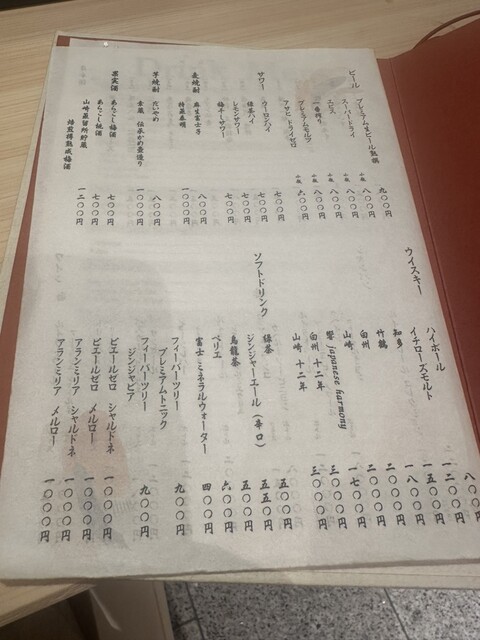 ビール
プレミアム生ビール熟撰 九〇〇円
スーパードライ 小瓶 八〇〇円
エビス 小瓶 八〇〇円
一番搾り 小瓶 八〇〇円
プレミアムモルツ 小瓶 八〇〇円
アサヒ ドライゼロ 小瓶 六〇〇円
サワー
ウーロンハイ 七〇〇円
緑茶ハイ 七〇〇円
レモンサワー 七〇〇円
梅干しサワー 七〇〇円
麦焼酎
八〇〇円
特蒸泰明 一〇〇〇円
芋焼酎
だいやめ 八〇〇円
萬蔵 伝承かめ壷造り 一〇〇〇円
果実酒
あらごし梅酒 七〇〇円
あらごし桃酒 七〇〇円
山崎蒸留所貯蔵
焙煎樽熟成梅酒 一二〇〇円
ウイスキー
ハイボール 八〇〇円
イチローズモルト 一二〇〇円
知多 一五〇〇円
竹鶴 一八〇〇円
白州 二〇〇〇円
山崎 二〇〇〇円
響 Japanese harmony 一七〇〇円
白州 十二年 三〇〇〇円
山崎 十二年 三〇〇〇円
ソフトドリンク
緑茶 五〇〇円
ジンジャーエール（辛口） 五五〇円
烏龍茶 五〇〇円
ペリエ 六〇〇円
富士ミネラルウォーター 四〇〇円
フィーバーツリー
プレミアムトニック 九〇〇円
フィーバーツリー
ジンジャビア 九〇〇円
ピエールゼロ シャルドネ 一〇〇〇円
ピエールゼロ メルロー 一〇〇〇円
アランミリア シャルドネ 一〇〇〇円
アランミリア メルロー 一〇〇〇円